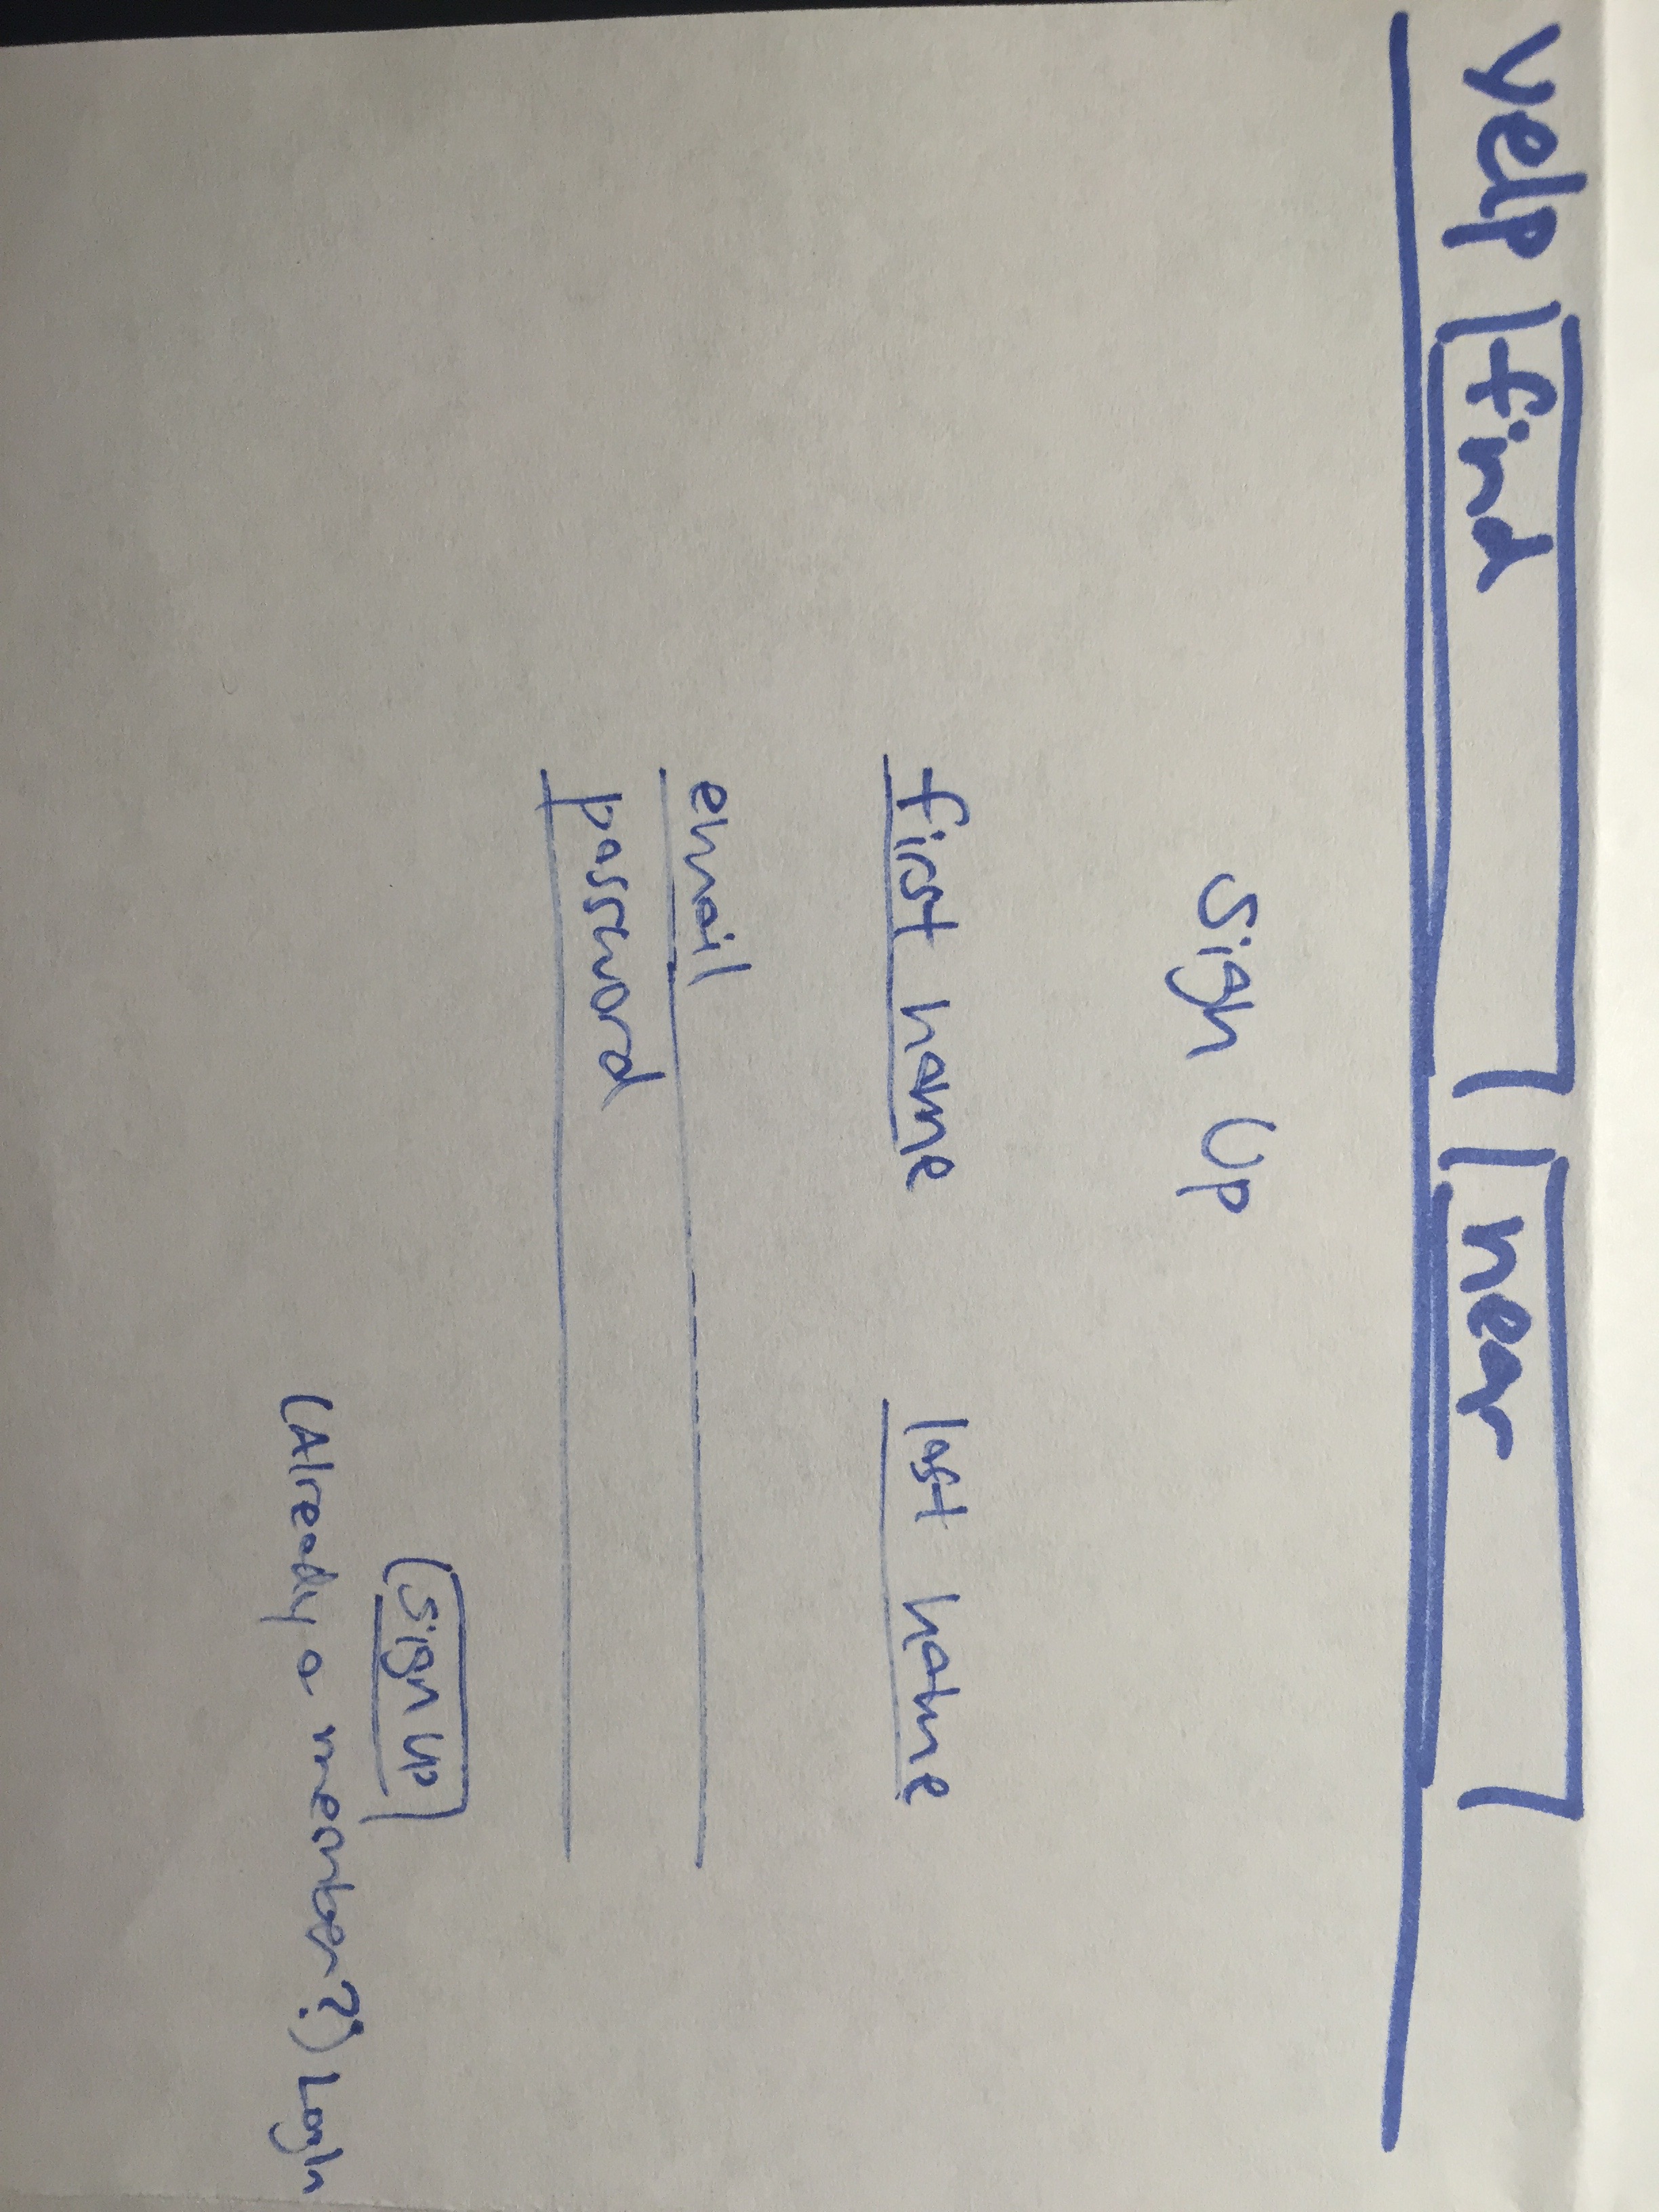 yelp find near
Sign Up
first name last name
email
password
Sign Up
(Already a member?) Login